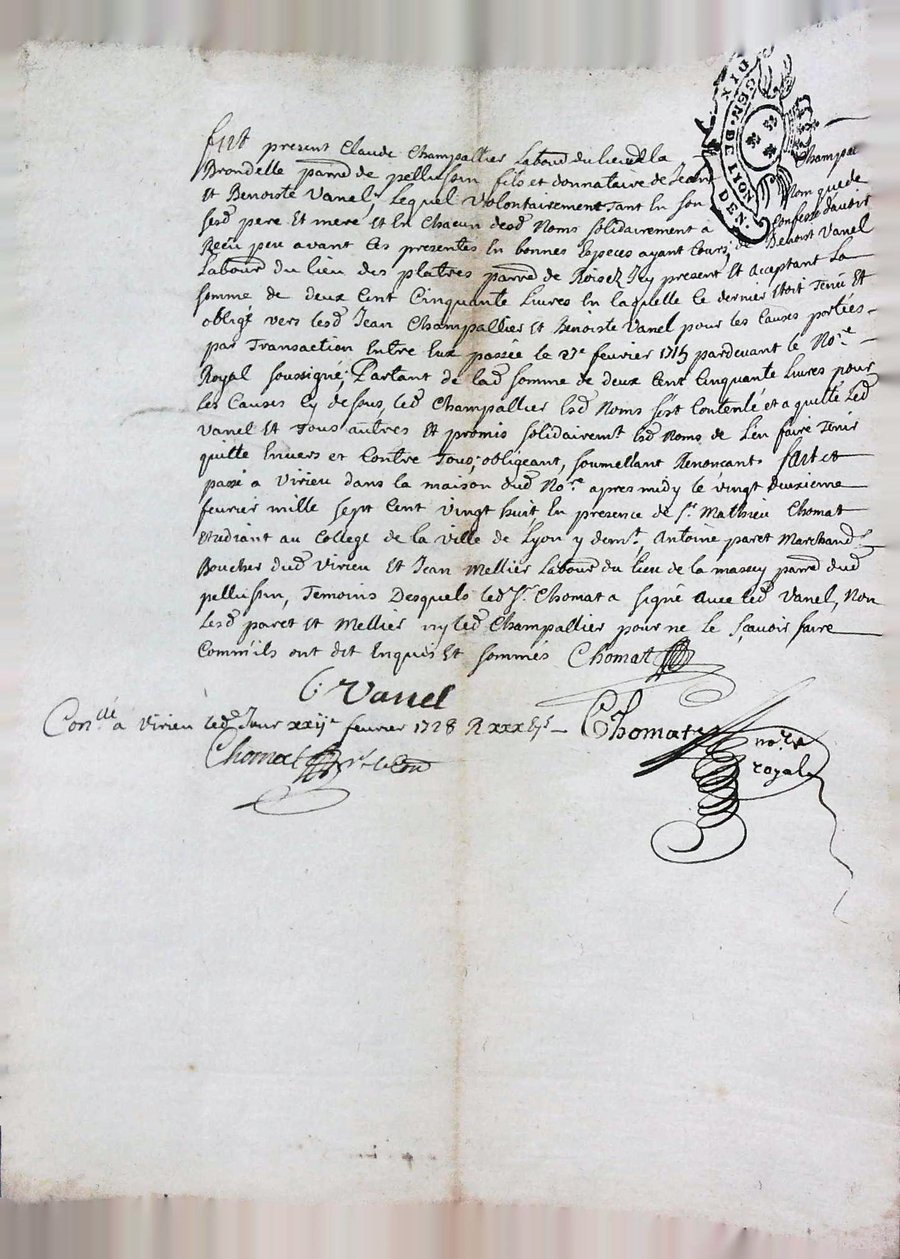 GEN. D. LYON
DIX DEN.
Fut present Claude Champallier Labour. du lieu de la
Brondelle parr.d de pellussin fils et donnataire de Jean Champal
Et Benoiste Vanel, Lequel Volontairement Tant En son Nom que de
sesd pere Et mere Et En Chacun desd Noms solidairement a confessé d'avoir
Reçu peu avant Ces presentes En bonnes Especes ayant Cours, de Benoist Vanel
Labour. du Lieu des platres parr.d de Roisey Icy present Et acceptant La
somme de deux Cent Cinquante Livres En laquelle Ce dernier Etoit Tenu Et
obligé vers lesd Jean Champallier Et Benoiste Vanel pour les Causes portées
par Transaction Entre Eux passée le 27e fevrier 1715 pardevant le No.re
Royal soussigné; Partant de lad somme de deux Cent Cinquante Livres pour
les Causes Cy dessus, led Champallier Esd Noms s'est Contenté et a quitté Led
Vanel Et Tous autres Et promis solidairemt Esd Noms de L'en faire Tenir
quitte Envers et Contre Tous; obligeant, soumettant Renonçants fait et
passé a Virieu dans la maison dud No.re apres midy le vingt deuxieme
fevrier mille sept Cent vingt huit En presence de Sr. Mathieu Chomat
Etudiant au College de la ville de Lyon y demt. Antoine paret Marchand
Boucher dud Virieu Et Jean Mellier Labour. du Lieu de la massey parr.d dud
pellussin, Temoins Desquels led Sr. Chomat a signé avec led Vanel, Non
Lesd paret Et Mellier ny led Champallier pour ne le sçavoir faire
Comm'ils ont dit Enquis Et sommés Chomat
C. Vanel
Con.llé a Virieu led Jour xxije fevrier 1728 R xxx s
Chomat
Chomat no.re
royal